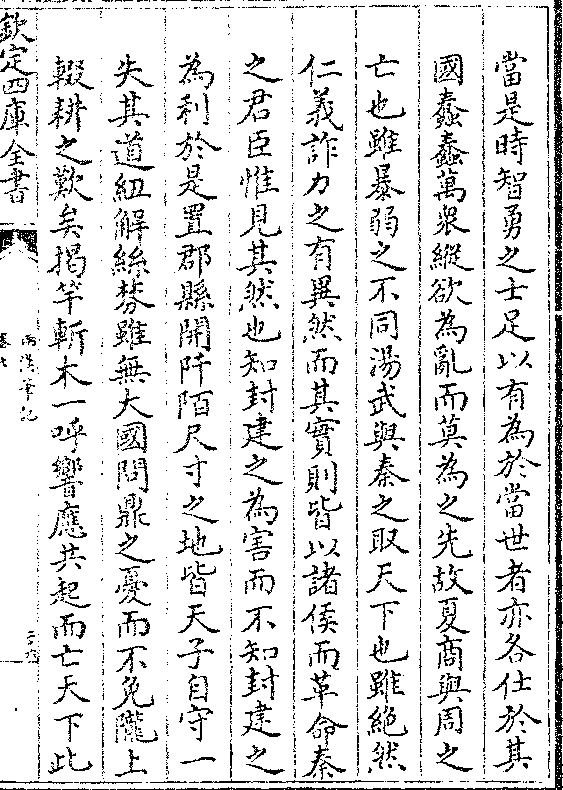 當是時智勇之士足以有為於當世者亦各仕於其
國蠢蠢萬衆縱欲為亂而莫為之先故夏商與周之
亡也雖暴弱之不同湯武與秦之取天下也雖絶然
仁義詐力之有異然而其實則皆以諸侯而革命秦
之君臣惟見其然也知封建之為害而不知封建之
為利於是置郡縣開阡陌尺寸之地皆天子自守一
失其道紐解絲棼雖無大國問鼎之憂而不免隴上
輟耕之歎矣揭竿斬木一呼響應共起而亡天下此
欽定四庫全書
兩漢筆記